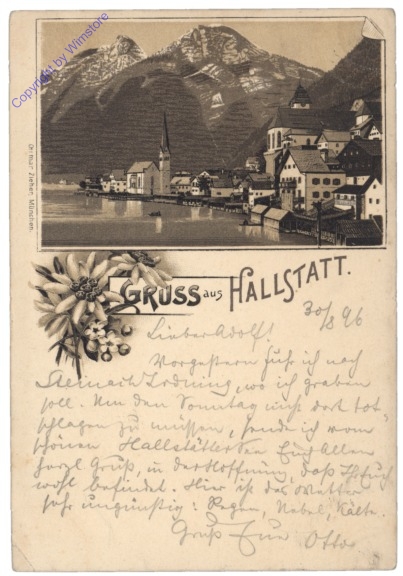 Copyright by Wimstore
Ottmar Zieher, München.
GRUSS aus HALLSTATT.
30/8 96
Lieber Adolf!
Vorgestern fuhr ich nach
Steinach Irdning, wo ich graben
soll. Um den Sonntag nicht dort tot-
schlagen zu müssen, sende ich vom
schönen Hallstättersee Euch Allen
herzl Gruß, in der Hoffnung, daß Ihr Euch
wohl befindet. Hier ist das Wetter
sehr ungünstig: Regen, Nebel, Kälte.
Gruß Euer Otto